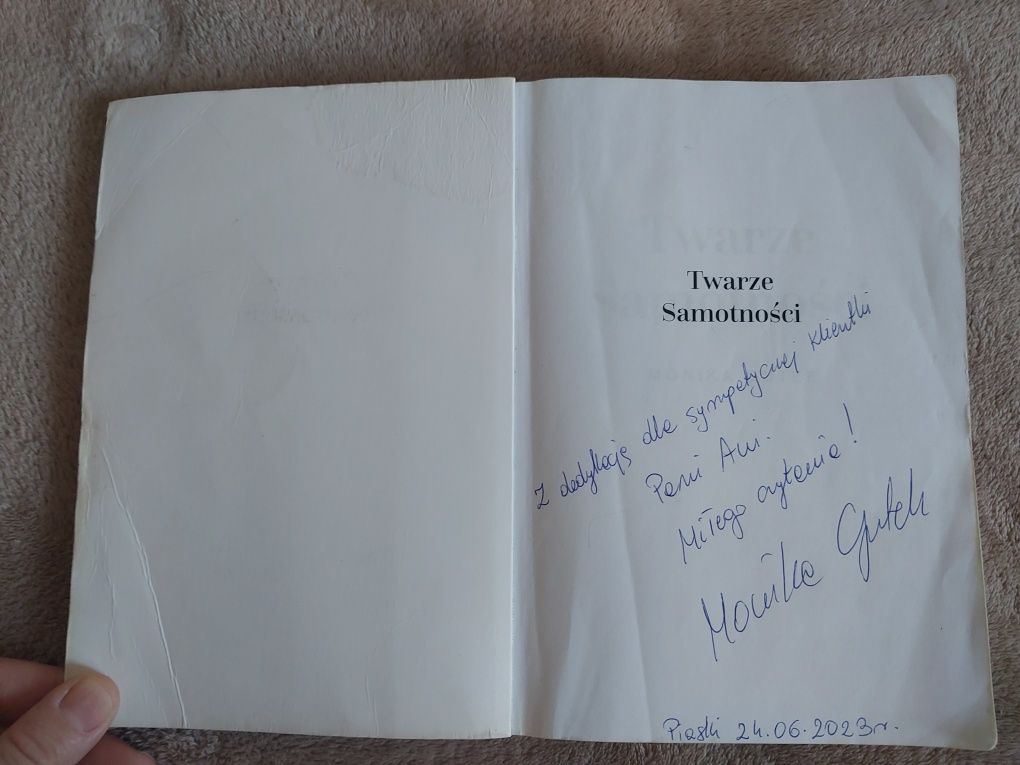 Twarze
Samotności
Z dedykacją dla sympatycznej klientki
Pani Ani.
Miłego czytania!
Monika
Piaski 24.06.2023r.